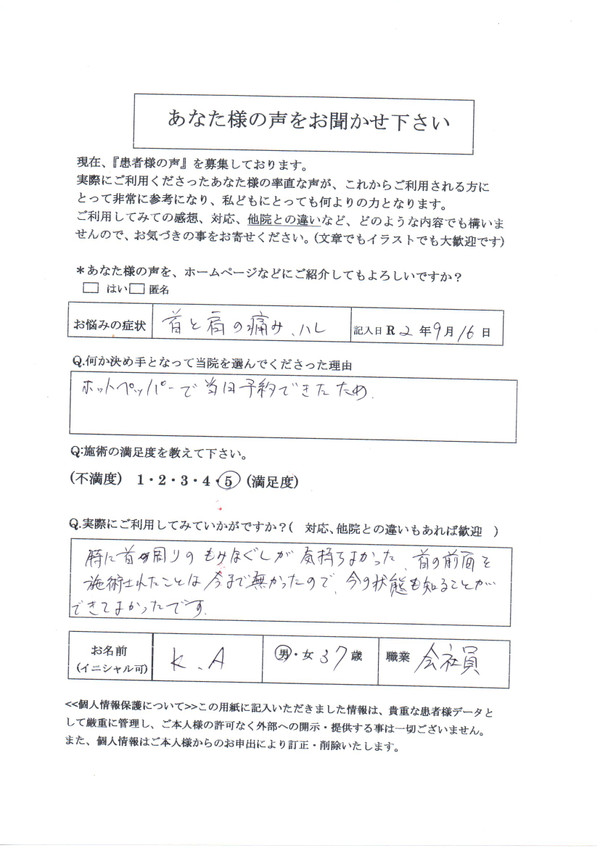 あなた様の声をお聞かせ下さい
現在、『患者様の声』を募集しております。
実際にご利用くださったあなた様の率直な声が、これからご利用される方に
とって非常に参考になり、私どもにとっても何よりの力となります。
ご利用してみての感想、対応、他院との違いなど、どのような内容でも構いま
せんので、お気づきの事をお寄せください。(文章でもイラストでも大歓迎です)
＊あなた様の声を、ホームページなどにご紹介してもよろしいですか？
□ はい□ 匿名
お悩みの症状 首と肩の痛み、ハレ 記入日 R 2 年 9 月 16 日
Q.何か決め手となって当院を選んでくださった理由
ホットペッパーで当日予約できたため.
Q:施術の満足度を教えて下さい。
(不満度) 1・2・3・4・5 (満足度)
Q.実際にご利用してみていかがですか？( 対応、他院との違いもあれば歓迎 )
特に首の周りのもみほぐしが気持ちよかった. 首の前面を
施術されたことは今まで無かったので、今の状態も知ることが
できてよかったです.
お名前 (イニシャル可) K. A 男・女 37 歳 職業 会社員
<<個人情報保護について>>この用紙に記入いただきました情報は、貴重な患者様データと
して厳重に管理し、ご本人様の許可なく外部への開示・提供する事は一切ございません。
また、個人情報はご本人様からのお申出により訂正・削除いたします。